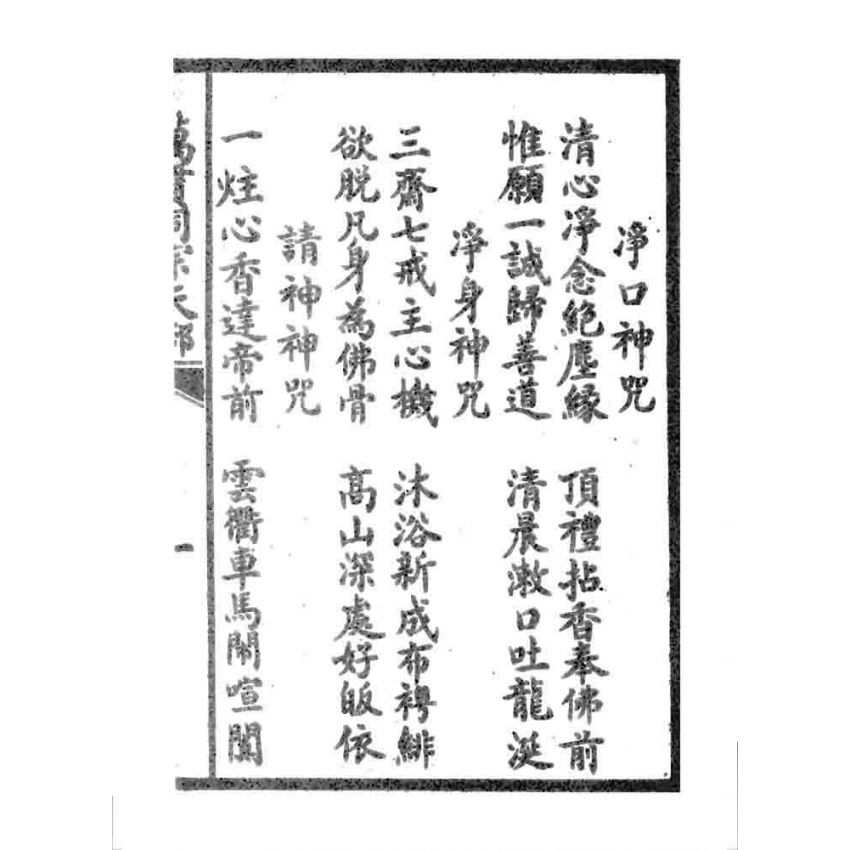 淨口神咒
清心淨念絕塵緣　頂禮拈香奉佛前
惟願一誠歸善道　清晨漱口吐龍涎
淨身神咒
三齋七戒主心機　沐浴新成布裯緋
欲脱凡身為佛骨　高山深處好皈依
請神神咒
一炷心香達帝前　雲衢車馬鬧喧闐
萬
一